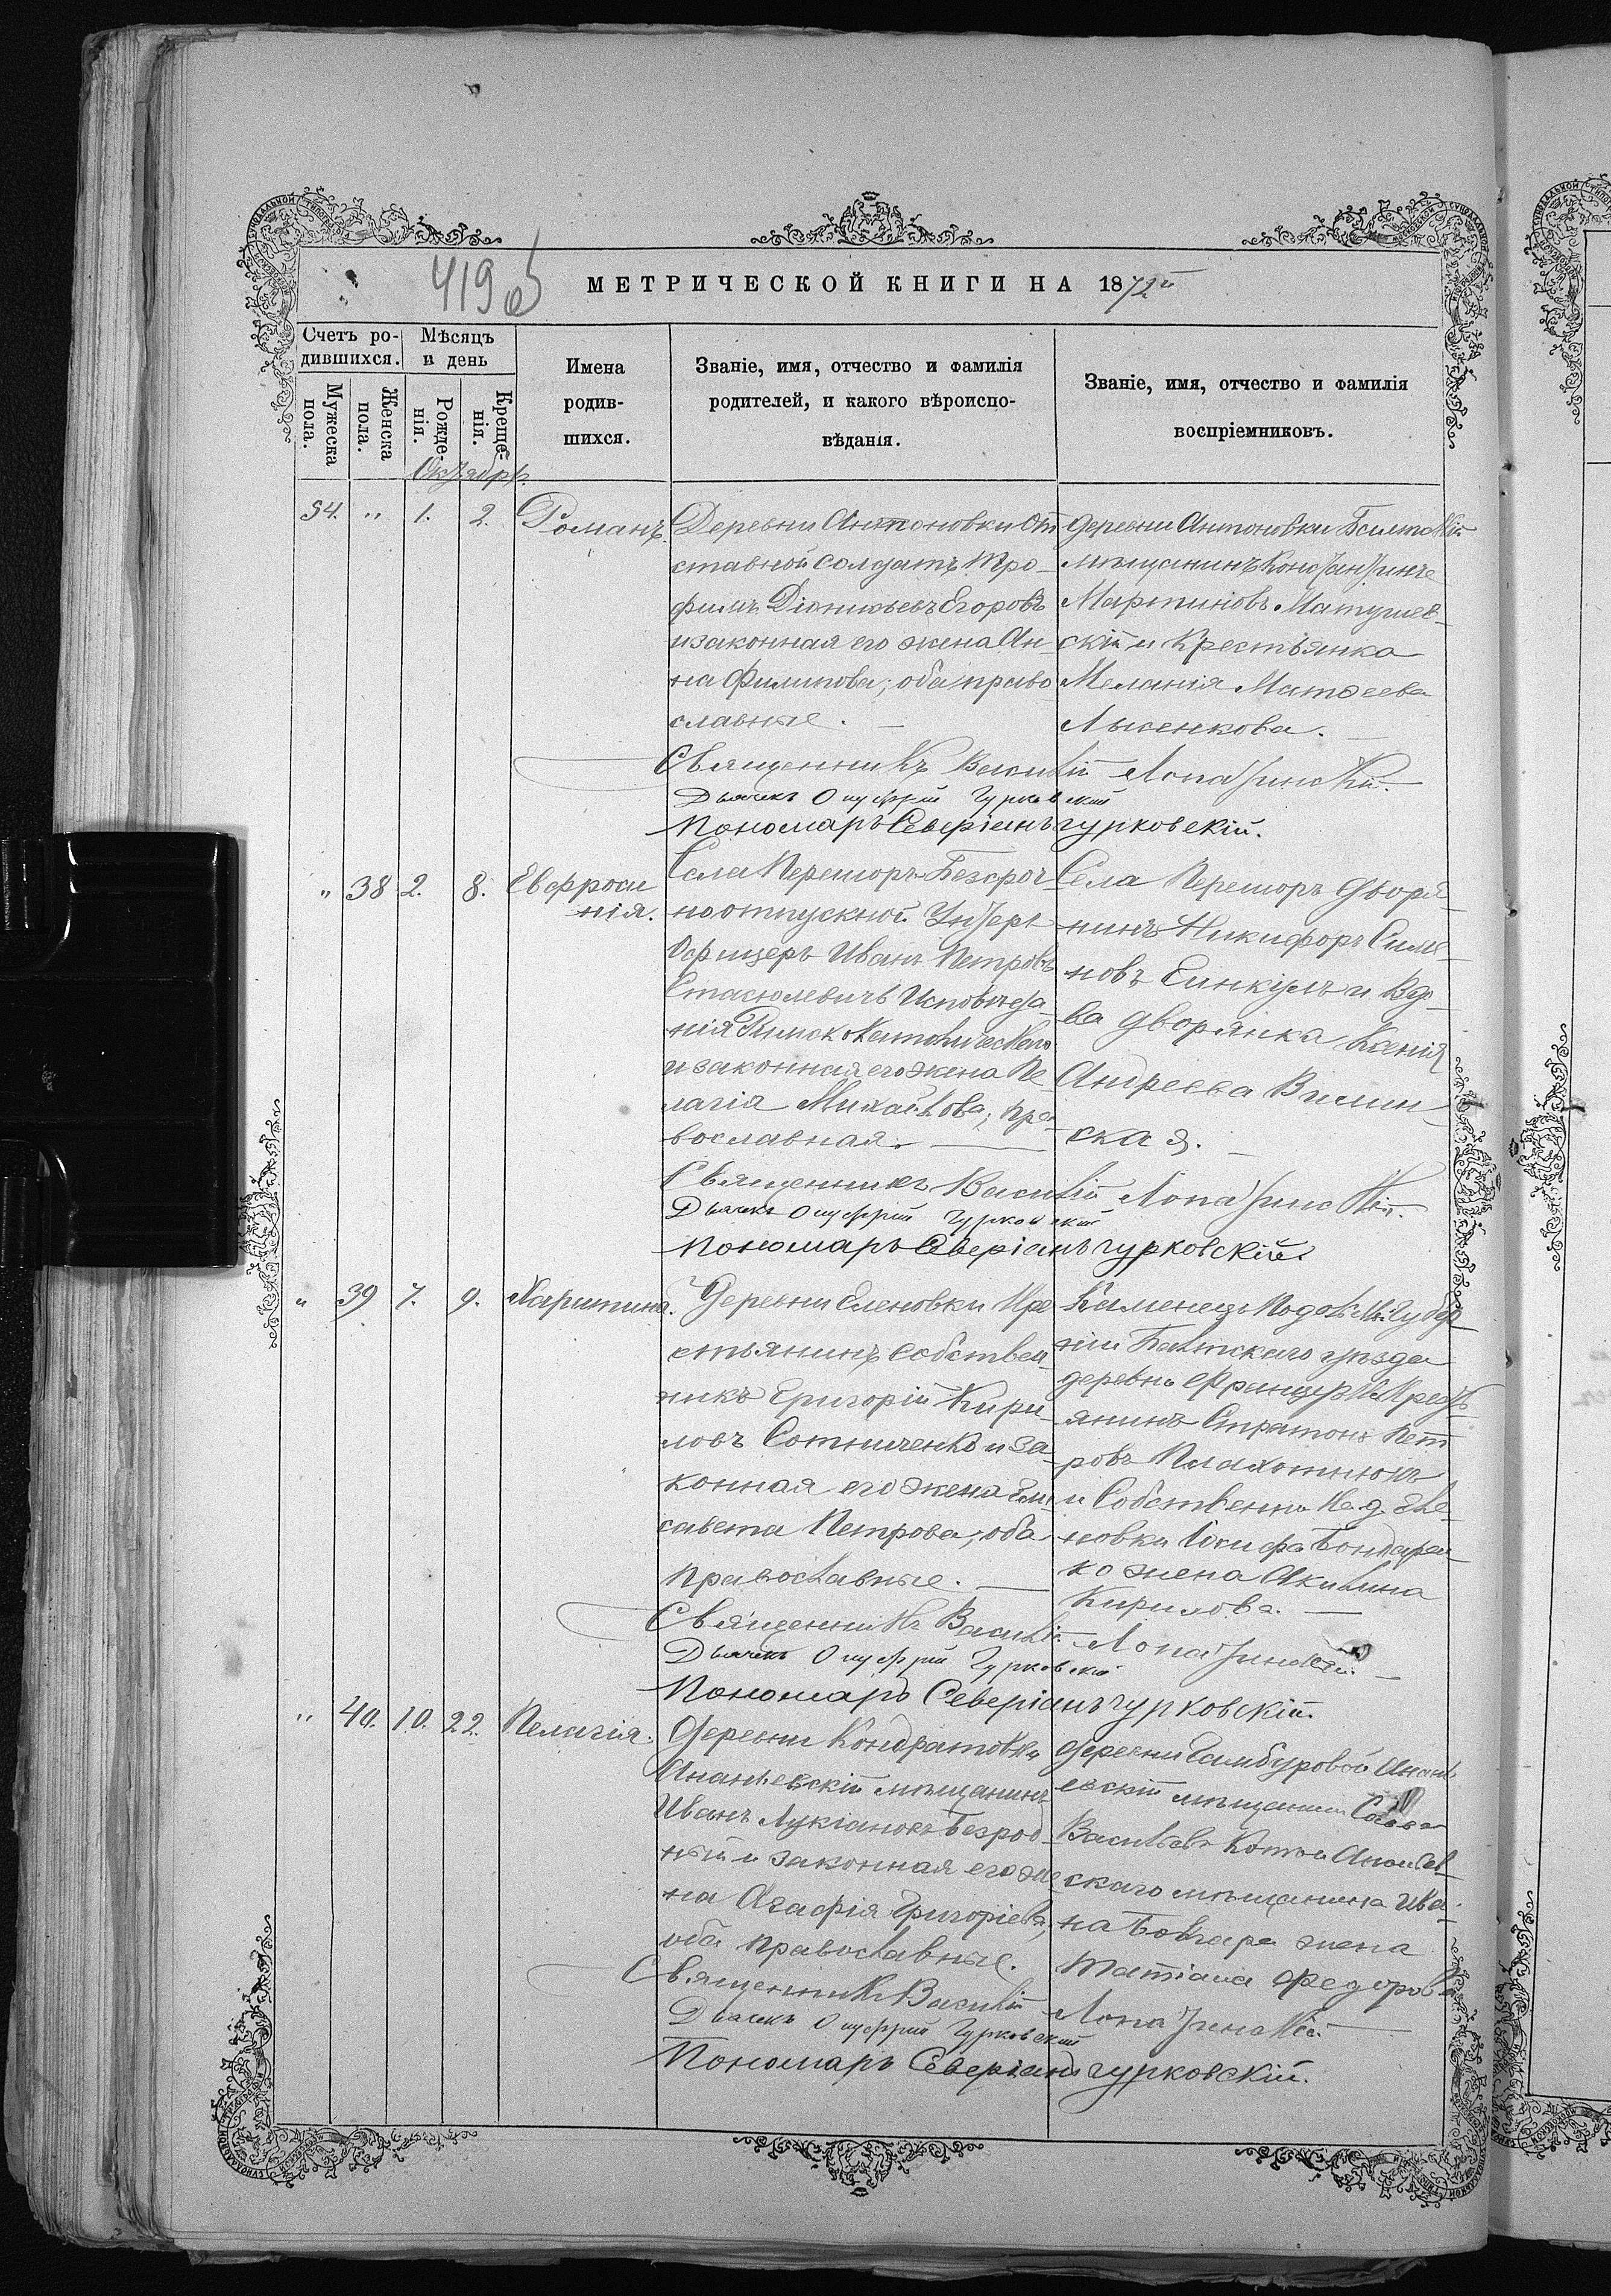 419 об
МЕТРИЧЕСКОЙ КНИГИ НА 1872й
Счетъ ро-
дившихся.
Мѣсяцъ
и день
Мужеска
пола.
Женска
пола.
Рожде-
нія.
Креще-
нія.
Имена
родив-
шихся.
Званіе, имя, отчество и фамилія
родителей, и какого вѣроиспо-
вѣданія.
Званіе, имя, отчество и фамилія
воспріемниковъ.
Октябрь
54. " 1. 2. Романъ.
Деревни Антоновки От
ставной солдатъ Тро-
фимъ Діонисьевъ Егоровъ
и законная его жена Ан-
на Филипова; оба право
славные.
деревни Антоновки
мѣщанинъ Константинъ
Мартиновъ Матушев-
скій и Крестьянка
Меланія Матѳеева
Лысенкова.
Священникъ Василій Лопатинскій.
Дьячекъ Онуфрій Гурковскій
Пономаръ Северіанъ Гурковскій.
" 38 2. 8. Евфроси
нія.
Села Перешоръ Безсроч-
ноотпускной Унтеръ
Офицеръ Иванъ Петровъ
Стасюлевичъ Исповѣда-
нія Римско Католическаго
и законная его жена Пе
лагія Михайлова; пра-
вославная.
Села Перешоръ дворя-
нинъ Никифоръ Симо-
новъ Еинкулъ и вдо-
ва дворянка Ксенія
Андреева Вилин-
ская.
Священникъ Василій Лопатинскій.
Дьячекъ Онуфрій Гурковскій
Пономаръ Северіанъ Гурковскій.
" 39 7. 9. Харитина.
Деревни Еленовки Кре
стьянинъ собствен-
никъ Григорій Кири-
ловъ Сотниченко и за-
конная его жена Ели-
савета Петрова; оба
православные.
Каменецъ Подольской Губер-
ніи Балтскаго уѣзда
деревни Французки Кресть
янинъ Стратонъ Пет
ровъ Плахотнюкъ
и Собственника д. Еле-
новки Іосифа Бондарен-
ко жена Акилина
Кирилова.
Священникъ Василій Лопатинскій.
Дьячекъ Онуфрій Гурковскій
Пономаръ Северіанъ Гурковскій.
" 40. 10. 22. Пелагія.
Деревни Кондратовки
Ананьевскій мѣщанинъ
Иванъ Лукіановъ Безрод-
ный и законная его же
на Агафія Григорьева;
оба православные.
деревни Гамбуровой Анань
евскій мѣщанинъ Савва
Васильевъ и Ананьев-
скаго мѣщанина Ива-
на Болгара жена
Татіана Федорова
Священникъ Василій Лопатинскій
Дьячекъ Онуфрій Гурковскій
Пономаръ Северіанъ Гурковскій.